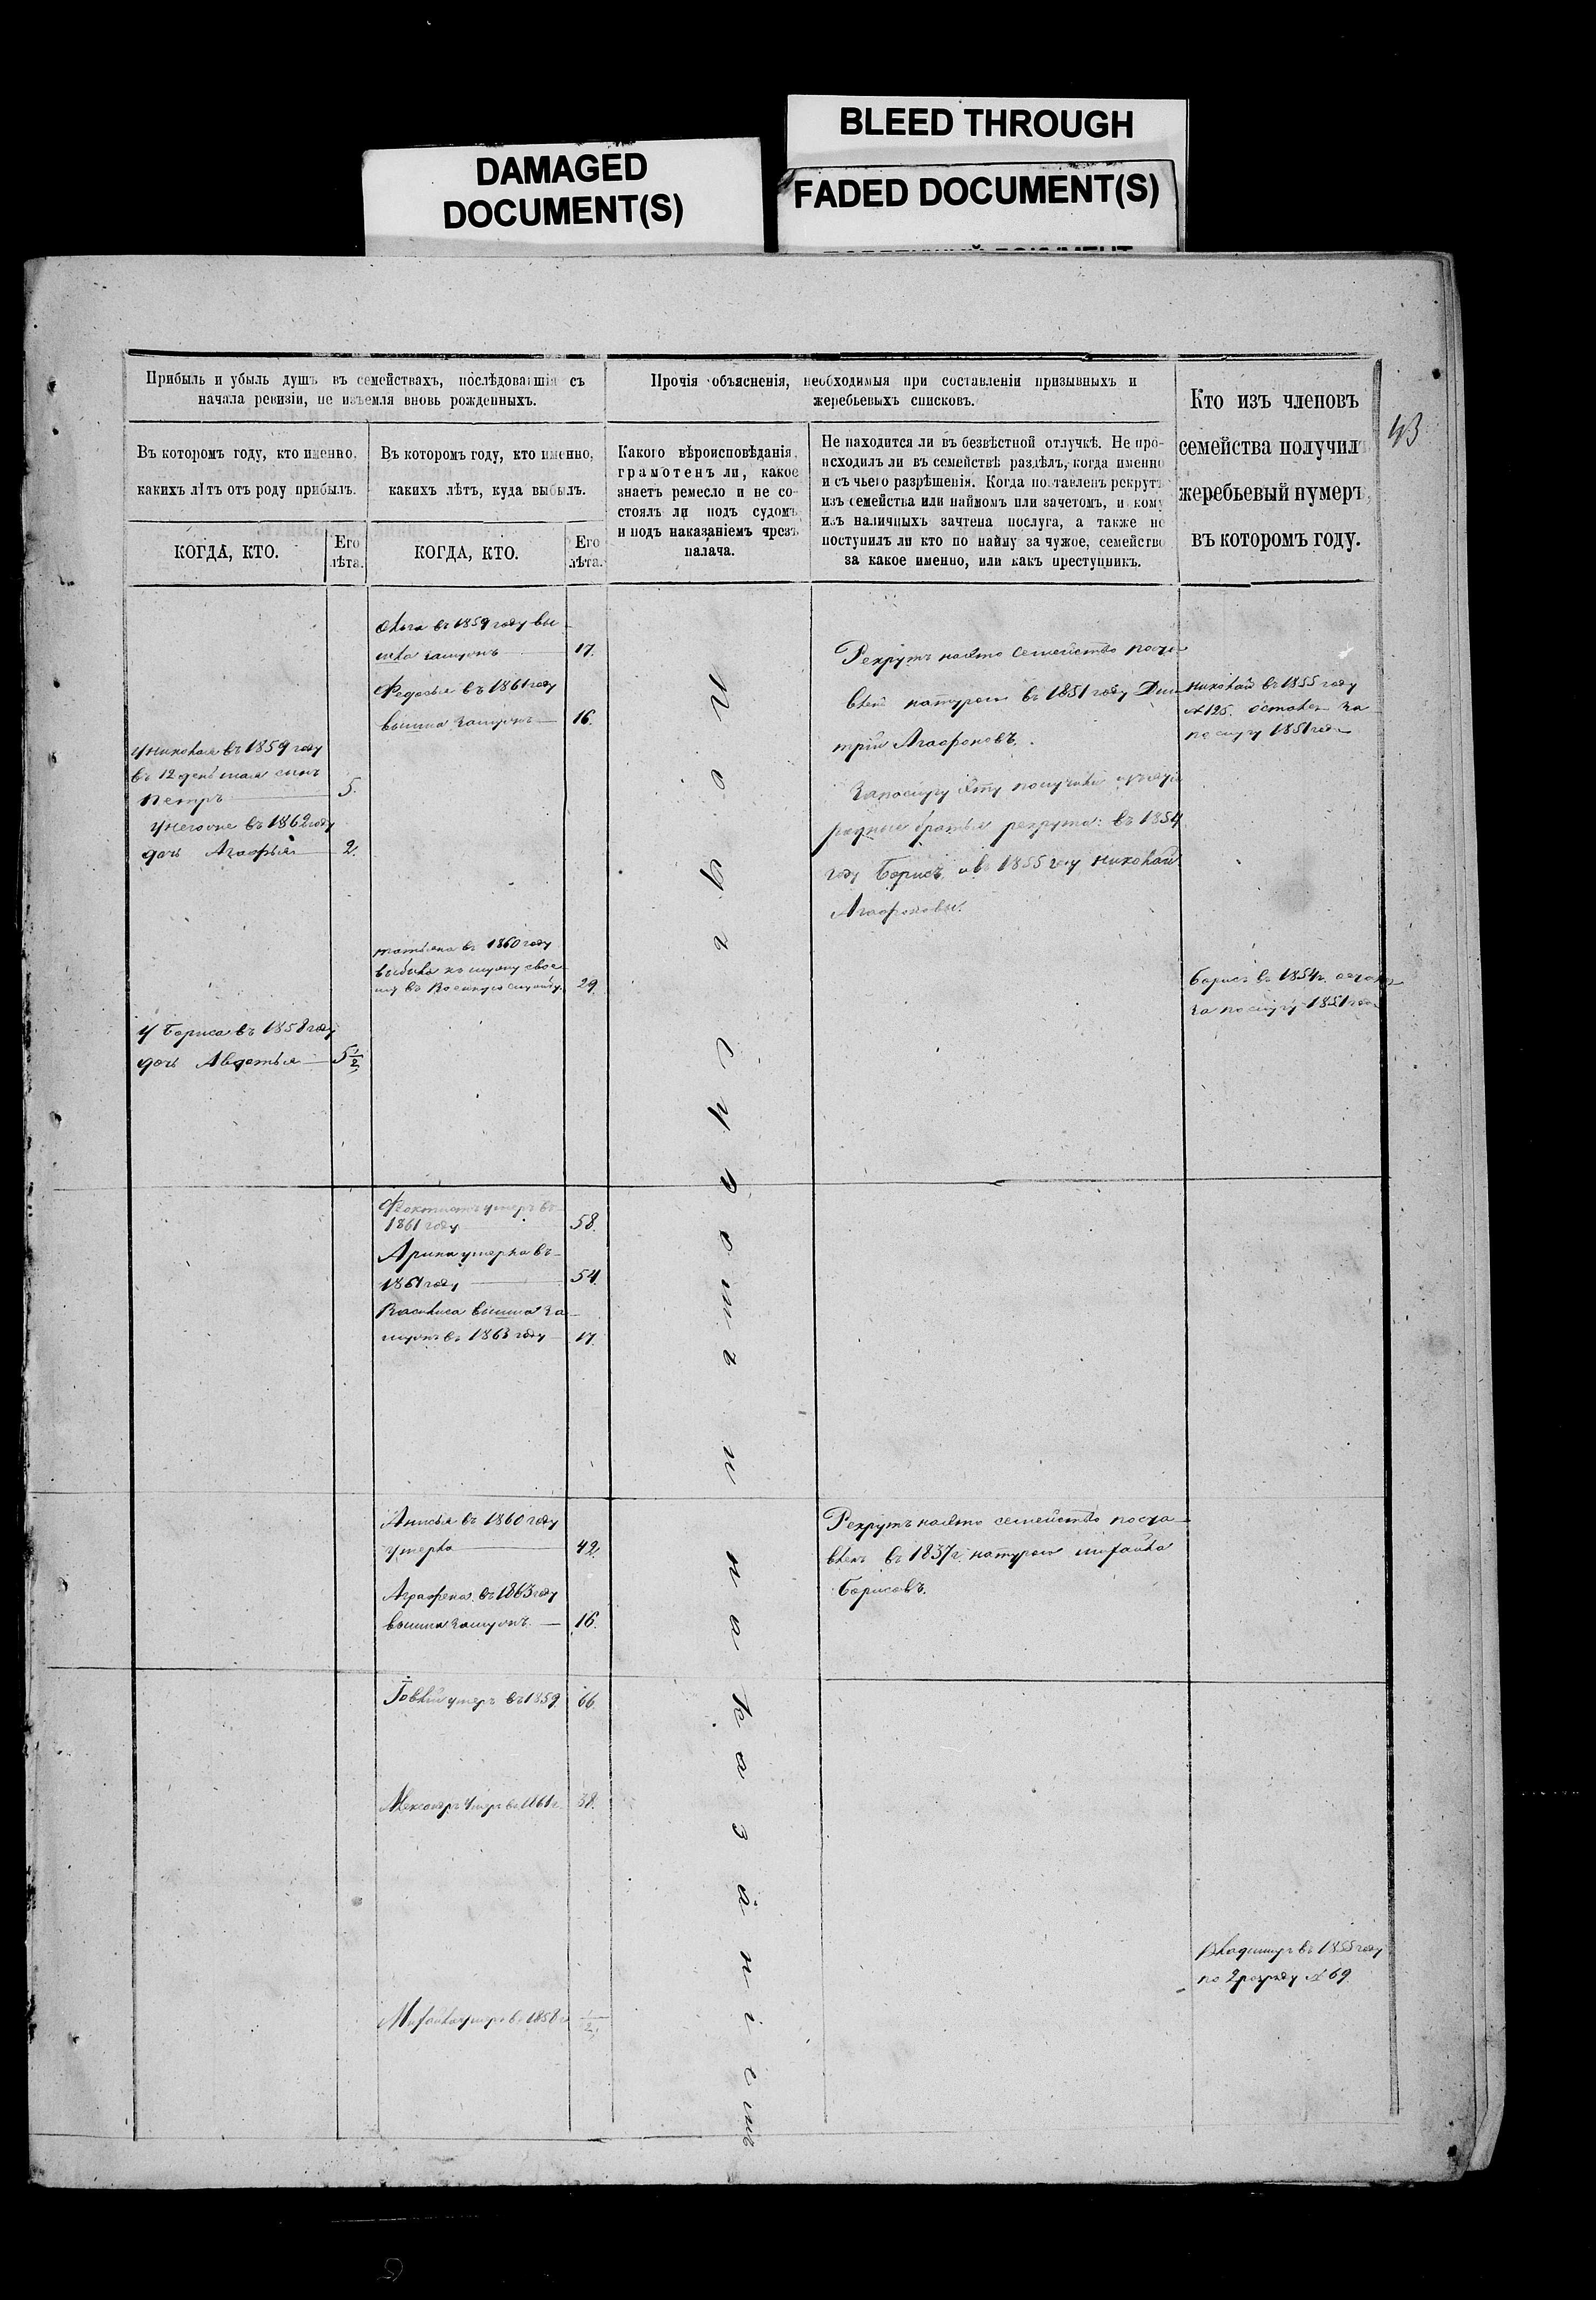 BLEED THROUGH
DAMAGED
DOCUMENT(S)
FADED DOCUMENT(S)
Прибыль и убыль душъ въ семействахъ, послѣдовавшія съ
начала ревизіи, не изъемля вновь рожденныхъ.
Прочія объясненія, необходимыя при составленіи призывныхъ и
жеребьевыхъ списковъ.
Кто изъ членовъ
семейства получилъ
жеребьевый нумеръ,
въ которомъ году.
43
Въ которомъ году, кто именно,
какихъ лѣтъ отъ роду прибылъ.
Въ которомъ году, кто именно,
какихъ лѣтъ, куда выбылъ.
Какого вѣроисповѣданія,
грамотенъ ли, какое
знаетъ ремесло и не со-
стоялъ ли подъ судомъ
и подъ наказаніемъ чрезъ
палача.
Не находится ли въ безвѣстной отлучкѣ. Не про-
исходилъ ли въ семействѣ раздѣлъ, когда именно
и съ чьего разрѣшенія. Когда поставленъ рекрутъ
изъ семейства или наймомъ или зачетомъ, и кому
изъ наличныхъ зачтена послуга, а также не
поступилъ ли кто по найму за чужое, семейство
за какое именно, или какъ преступникъ.
КОГДА, КТО.
Его
лѣта.
КОГДА, КТО.
Его
лѣта.
У николая въ 1859 году
въ 12 день мая сынъ
Петръ 5.
У негоже въ 1862 году
дочь Агафья 2.
У Бориса въ 1858 году
дочь Авдотья 5 1/2
Ольга въ 1859 году вы
шла замужъ 17.
Федосья въ 1861 году
вышла замужъ 16.
татьяна въ 1860 году
выбыла къ мужу свое
му въ Военную службу. 29.
Феоктистъ умеръ въ
1861 году 58.
Арина умерла въ
1861 году 54.
Василиса вышла за
мужъ въ 1863 году 17.
Анисья въ 1860 году
умерла 42.
Аграфена въ 1863 году
вышла замужъ 16.
Іовлій умеръ въ 1859. 66.
Александръ умеръ въ 1861 г. 38.
Михайла умеръ въ 1858 г. 1/2
Подъ судомъ и наказаніемъ
Рекрутъ наято семейство поста
вленъ натурою въ 1851 году Дми
трій Агафоновъ.
За послугу эту получили
родные братья рекрута: въ 1854
году Борисъ и въ 1855 году николай
Агафоновы.
Рекрутъ наято семейство поста
вленъ въ 1837 г. натурою михайла
Борисовъ.
Николай въ 1855 году
№ 125. оставленъ за
послугу 1851 года
Борисъ въ 1854 г. оставленъ
за послугу 1851 года
Владимиръ въ 1855 году
по 2 розряду № 69.